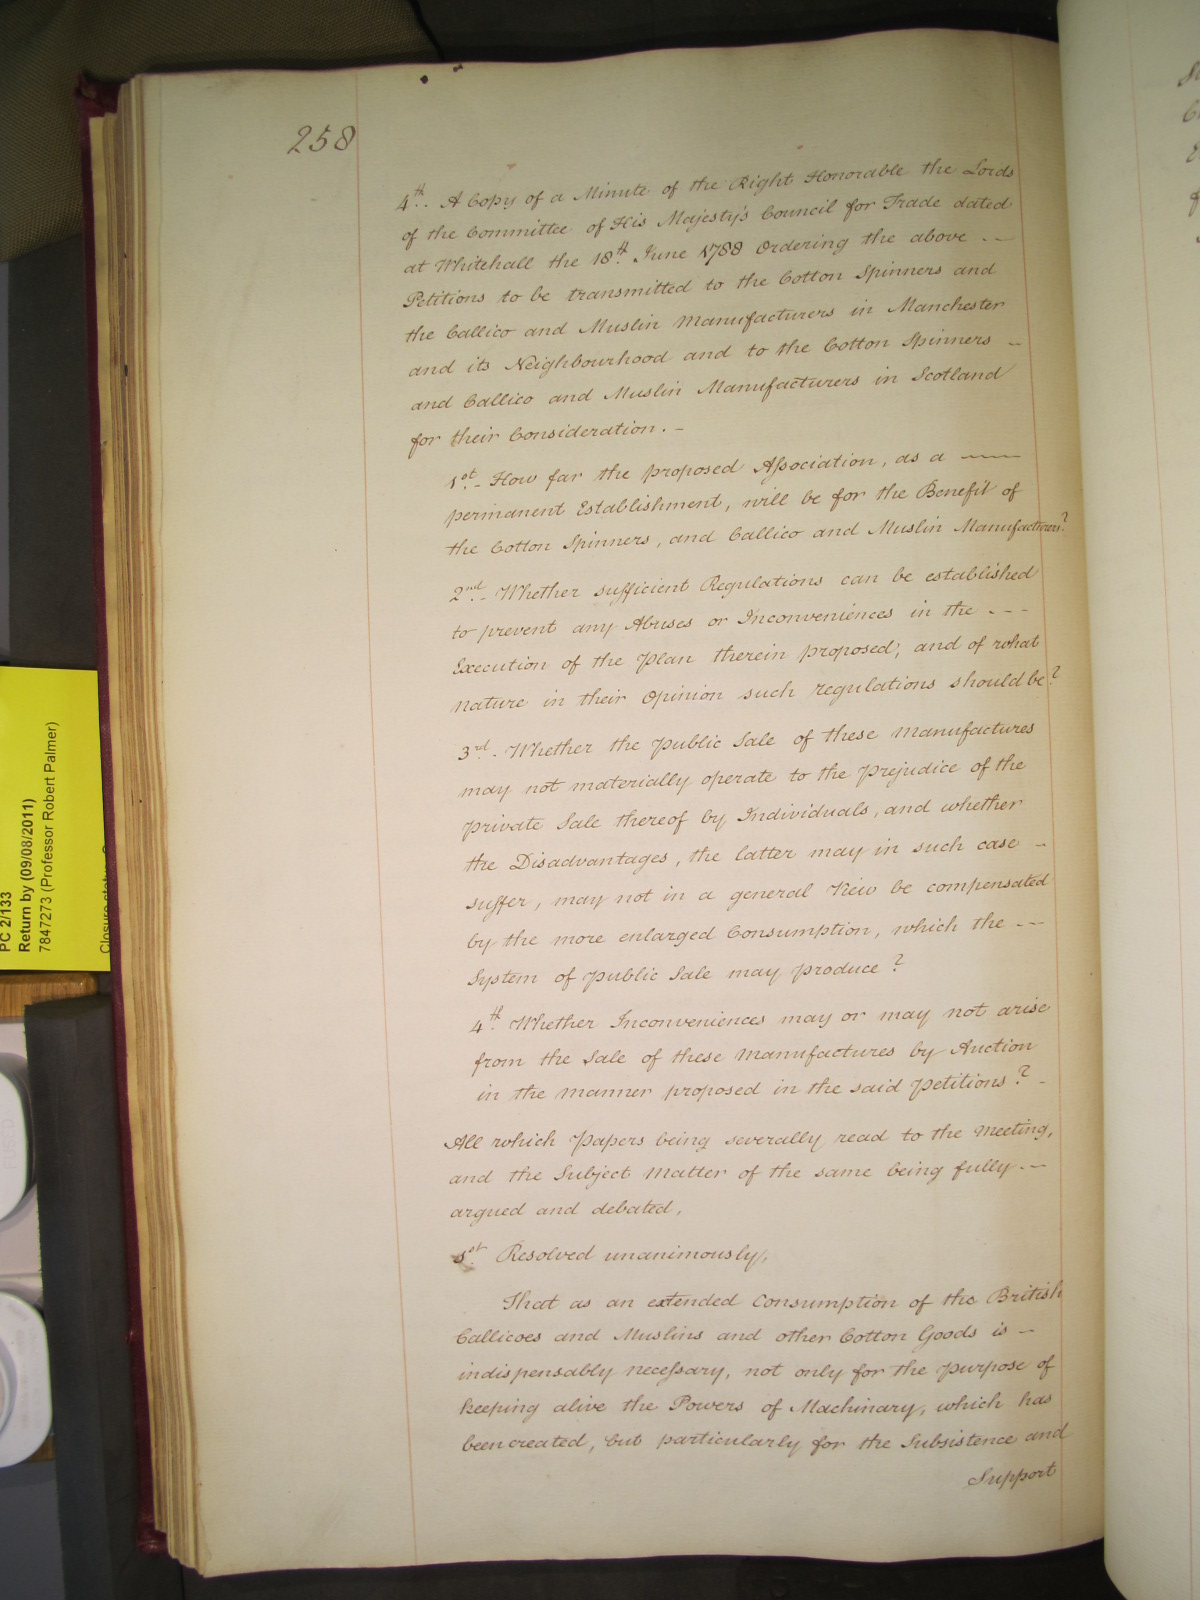 258
4th. A Copy of a Minute of the Right Honorable the Lords
of the Committee of His Majesty's Council for Trade dated
at Whitehall the 18th. June 1788 Ordering the above
Petitions to be transmitted to the Cotton Spinners and
the Callico and Muslin Manufacturers in Manchester
and its Neighbourhood and to the Cotton Spinners -
and Callico and Muslin Manufacturers in Scotland
for their Consideration. -
1st. - How far the proposed Association, as a
permanent Establishment, will be for the Benefit of
the Cotton Spinners, and Callico and Muslin Manufacturers?
2nd. - Whether sufficient Regulations can be established
to prevent any Abuses or Inconveniences in the - - -
Execution of the Plan therein proposed; and of what
nature in their Opinion such regulations should be?
3rd. - Whether the Public Sale of these Manufactures
may not materially operate to the Prejudice of the
Private Sale thereof by Individuals, and whether
the Disadvantages, the latter may in such case -
suffer, may not in a general View be compensated
by the more enlarged Consumption, which the - -
System of Public Sale may produce?
4th. Whether Inconveniences may or may not arise
from the Sale of these Manufactures by Auction
in the Manner proposed in the said Petitions? -
All which Papers being severally read to the Meeting,
and the Subject Matter of the same being fully - -
argued and debated,
1st. Resolved unanimously,
That as an extended Consumption of the British
Callicoes and Muslins and other Cotton Goods is -
indispensably necessary, not only for the Purpose of
keeping alive the Powers of Machinary, which has
been created, but particularly for the Subsistence and
Support
PC 2/133
Return by (09/08/2011)
7847273 (Professor Robert Palmer)
Closure status: